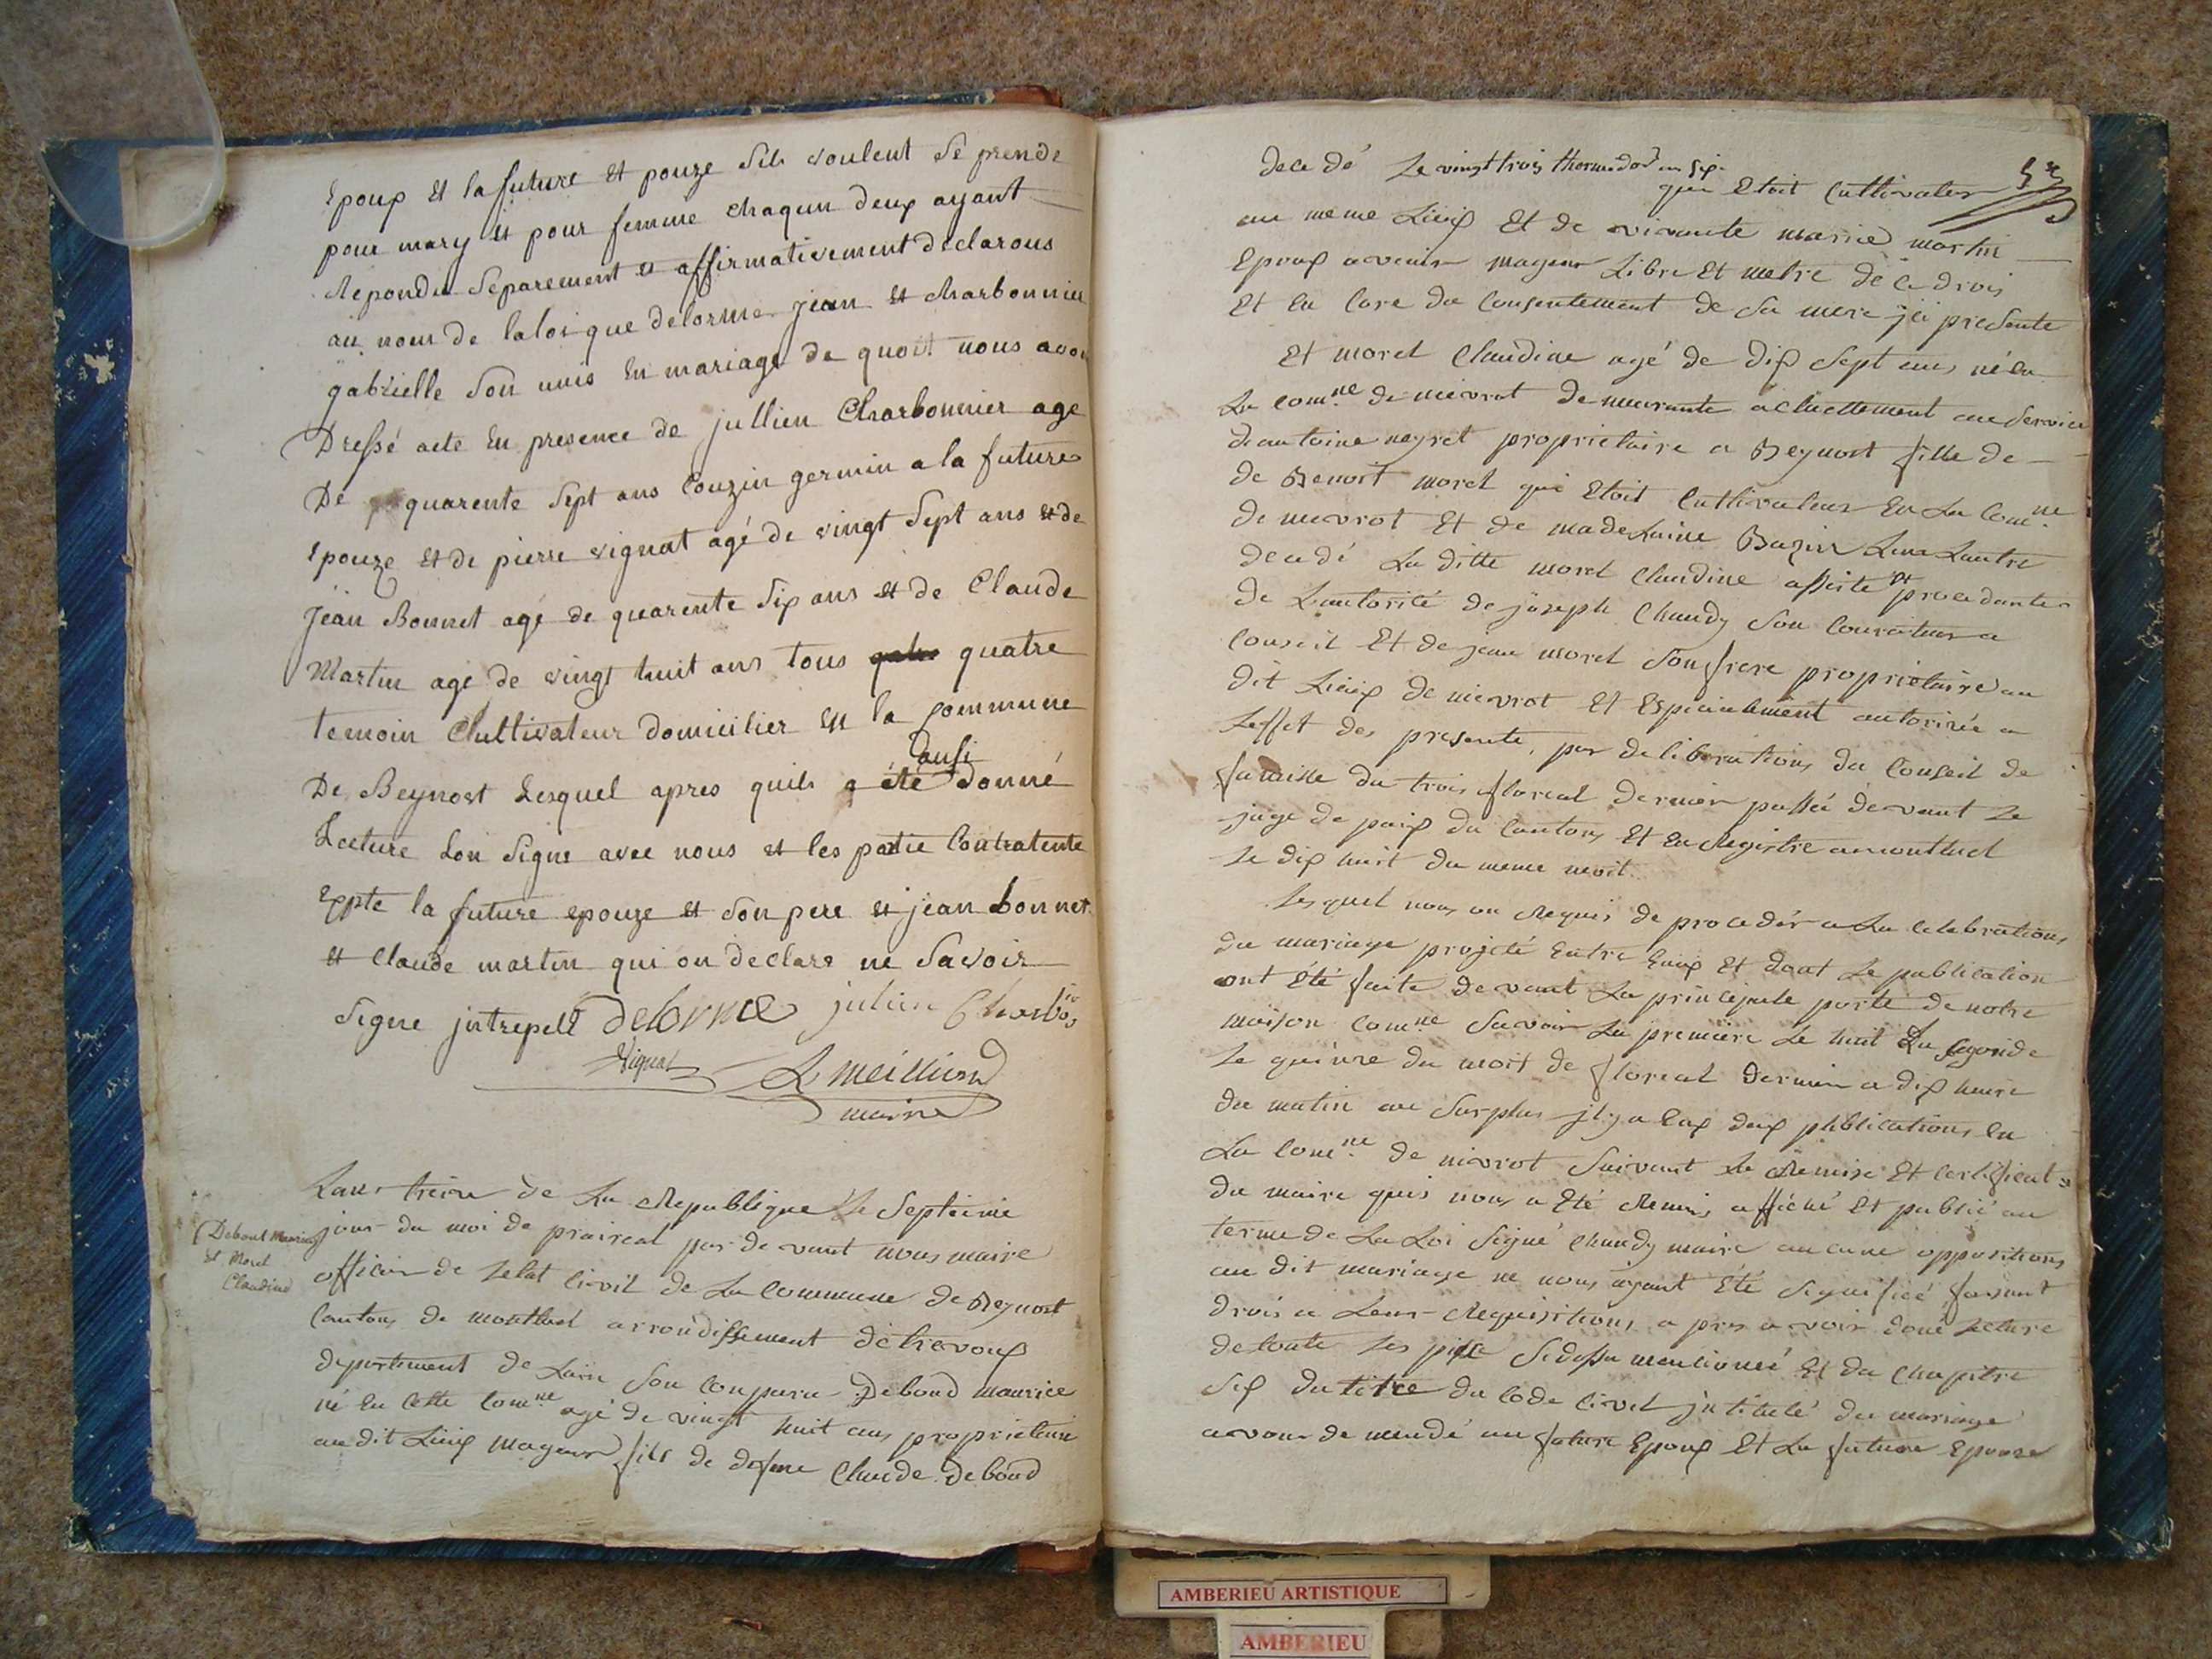 Epoux et la future et pouze sils voulent se prende
pour mary et pour femme chaqun deux ayant
repondu separement et affirmativement declarons
au nom de la loi que delorme jean et charbonnier
gabrielle son unis En mariage de quoit nous avon
Dressé acte En presence de jullien Charbonnier age
De quarente sept ans Couzin germin a la future
epouze et de pierre vignat agé de vingt sept ans et de
jean Bonnet agé de quarente six ans et de Claude
Martin age de vingt huit ans tous quatre
temoin Chultivateur domicilier en la commune
De Beynost Lesquel apres quils a été donné
Lecture Lon signe avec nous et les partie Contratente
Expte la future epouze et son pere et jean bonnet
et Claude martin qui on declare ne savoir
signe jntrepelé Delorme julien Charbo
Vignat L Meilliond
maire
Debout Maurice
et Morel
Claudine
Lans treize de La Republique Le septieme
jour du moi de praireal par de vant nous maire
officier de Letat Civil de La Commune de Beynost
Canton de montluel arrondissement de trevoux
departement de Lain son Comparu Debond maurice
né En cette Com.ne agé de vingt huit ans proprietaire
au dit Lieux mageur fils de Claude Debond
dece dé Le vingt trois thermidor an six
qui Etoit Cultivateur
au meme Lieux Et de vivante marie martin
Epoux avenir mageur Libre Et metre de ce drois
Et En Core du Consentement de sa mere ici presente
Et morel Claudine agé de dix sept ans né En
La Com.ne de mevrot demeurante actuellement au service
dantoine neyret proprietaire a Beynost fille de
de Benoit morel qui Etoit Cultivateur En La Com.ne
de mevrot Et de madeLaine Bazier Lun Lautre
decedé La ditte morel Claudine assisté et procedante
de Lautorité de joseph Chaudy son Courateur a
Conseil Et de jean morel son frere proprietaire au
dit Lieux de nievrot Et Espécialement autorisée a
Leffet des presente, par deliberations du Conseil de
famille du trois floreal dernier passée devant Le
juge de paix du Canton Et En Registré a montluel
Le dix huit du meme moit
Lesquel nous on Requis de proceder a La Celebrations
du mariage projeté Entre Eux Et dont Le publication
ont Été faite devant La principale porte de notre
maison Com.ne savoir La premiere Le huit La segonde
Le quinze du moit de floreal dernier a dix heure
du matin au surplus jl y a Eux deux publications En
La Com.ne de nievrot suivant La Remise Et Certificat
du maire quis nous a Eté Remis affiché Et publié au
terme de La Loi signé Chaudy maire aucune oppositions
au dit mariage ne nous ayant Été signifiée faisant
drois a Leur Requisitions, a pres avoir doné Lecture
de toute Les piesse sidessu mentionné Et du Chapitre
six du titre du Code Civil jntitulé du mariage
avons demendé au future Epoux Et La future Epouze
AMBERIEU ARTISTIQUE
AMBERIEU